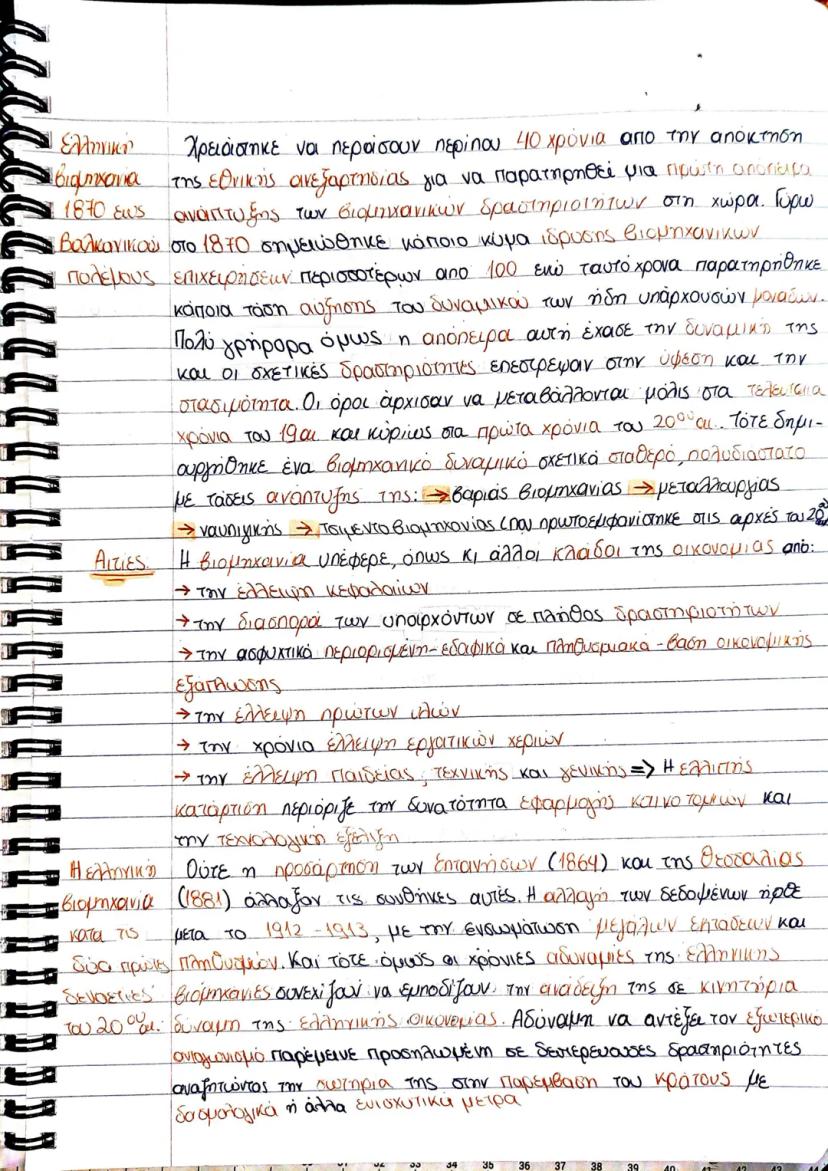 Ελληνική Χρειάστηκε να περάσουν περίπου 40 χρόνια από την απόκτηση
βιομηχανία της εθνικής ανεξαρτησίας για να παρατηρηθεί μια πρώτη απόπειρα
1870 έως ανάπτυξης των βιομηχανικών δραστηριοτήτων στη χώρα. Γύρω
Βαλκανικούς στο 1870 σημειώθηκε κάποιο κύμα ίδρυσης βιομηχανικών
πολέμους επιχειρήσεων περισσοτέρων απο 100 ενώ ταυτόχρονα παρατηρήθηκε
κάποια τάση αύξησης του δυναμικού των ήδη υπάρχουσών μονάδων.
Πολύ γρήγορα όμως η απόπειρα αυτή έχασε την δυναμική της
και οι σχετικές δραστηριότητες επέστρεψαν στην ύφεση και την
στασιμότητα. Οι όροι άρχισαν να μεταβάλλονται μόλις στα τελευταία
χρόνια του 19αι και κυρίως στα πρώτα χρόνια του 20ου αι. Τότε δημι-
ουργήθηκε ένα βιομηχανικό δυναμικό σχετικά σταθερό, πολυδιάστατο
με τάσεις ανάπτυξης της: → βαριάς βιομηχανίας → μεταλλουργίας
→ ναυπηγικής → τσιμεντοβιομηχανίας (που πρωτοεμφανίστηκε στις αρχές του 20ου
Αιτίες. Η βιομηχανία υπέφερε, όπως κι άλλοι κλάδοι της οικονομίας από:
→ την έλλειψη κεφαλαίων
→ την διασπορά των υπαρχόντων σε πλήθος δραστηριοτήτων
→ την ασφυκτικά περιορισμένη-εδαφικά και πληθυσμιακά-βάση οικονομικής
εξάπλωσης
→ την έλλειψη πρώτων υλών
→ την χρόνια έλλειψη εργατικών χεριών
→ την έλλειψη παιδείας, τεχνικής και γενικής => Η ελλιπής
κατάρτιση περιόριζε την δυνατότητα εφαρμογής καινοτομιών και
την τεχνολογική εξέλιξη
Η ελληνική Ούτε η προσάρτηση των Επτανήσων (1864) και της Θεσσαλίας
βιομηχανία (1881) άλλαξαν τις συνθήκες αυτές. Η αλλαγή των δεδομένων ήρθε
κατα τις μετα το 1912-1913, με την ενσωμάτωση μεγάλων εκτάσεων και
δύο πρώτες πληθυσμών. Και τότε όμως οι χρόνιες αδυναμίες της ελληνικής
δεκαετίες βιομηχανίες συνεχίζουν να εμποδίζουν την ανάδειξη της σε κινητήρια
του 20ου αι. δύναμη της ελληνικής οικονομίας. Αδύναμη να αντέξει τον εξωτερικό
ανταγωνισμό παρέμεινε προσηλωμένη σε δευτερεύουσες δραστηριότητες
αναζητώντας την σωτηρία της στην παρέμβαση του κράτους με
δασμολογικά ή άλλα ενισχυτικά μέτρα
32 33 34 35 36 37 38 39 40 41 42 43 44